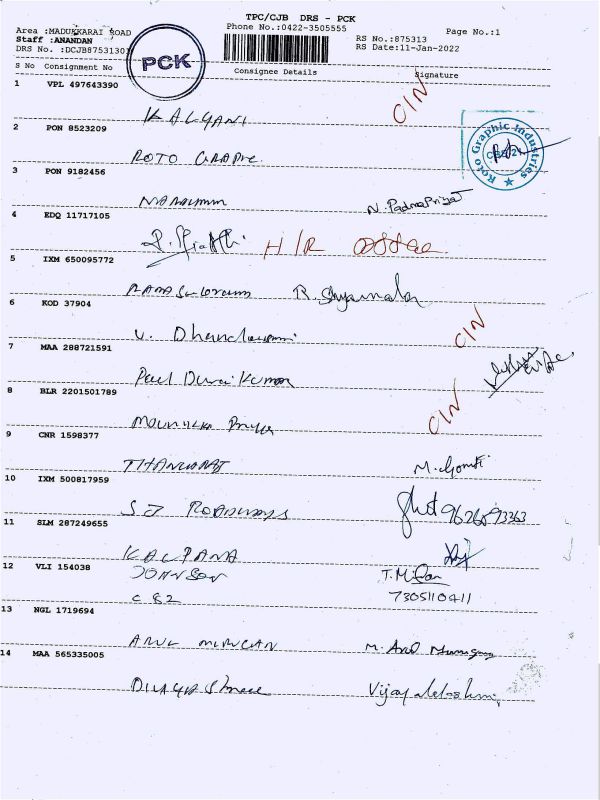 TPC/CJB DRS - PCK
Phone No.:0422-3505555
Area :MADUKKARAI ROAD
Staff :ANANDAN
DRS No. :DCJB87531301
PCK
RS No.:875313
RS Date:11-Jan-2022
Page No.:1
S No Consignment No Consignee Details Signature
1 VPL 497643390
KALYANI C/N
2 PON 8523209
ROTO GRAPIC
Roto Graphic Industries
3 PON 9182456
N. PadmaPriya
4 EDQ 11717105
H/R office
5 IXM 650095772
R. Shyamala
6 KOD 37904
V. C/N
7 MAA 288721591
Paul Durai Kumar
8 BLR 2201501789
C/N
9 CNR 1598377
M. Gomti
10 IXM 500817959
SJ ROADWAYS 9626593363
11 SLM 287249655
KALPANA
12 VLI 154038
JOHNSON
C 82 7305110411
13 NGL 1719694
ARUL MURUGAN M. Arul Murugan
14 MAA 565335005
Vijayalakshmi